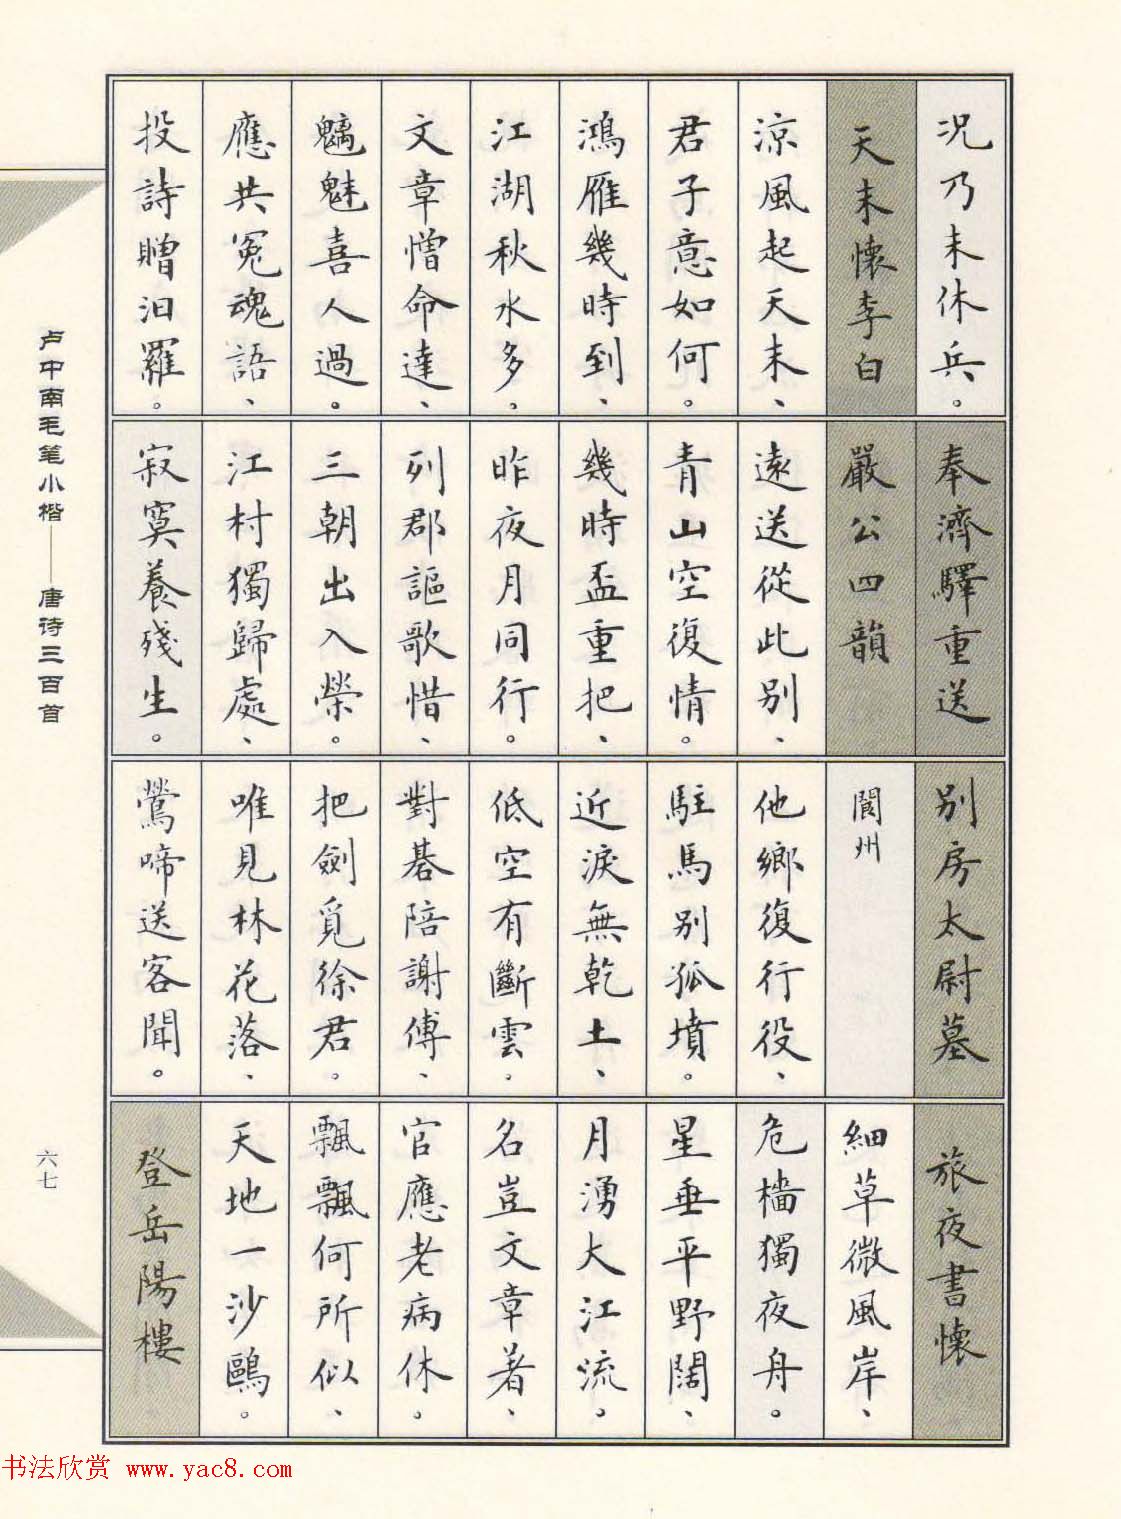 况乃未休兵。
天末懷李白
涼風起天末、
君子意如何。
鴻雁幾時到、
江湖秋水多。
文章憎命達、
魑魅喜人過。
應共冤魂語、
投詩贈汨羅。
奉濟驛重送
嚴公四韻
遠送從此别、
青山空復情。
幾時盃重把、
昨夜月同行。
列郡謳歌惜、
三朝出入榮。
江村獨歸處、
寂寞養殘生。
别房太尉墓
閬州
他鄉復行役、
駐馬别孤墳。
近淚無乾土、
低空有斷雲。
對碁陪謝傅、
把劍覓徐君。
唯見林花落、
鶯啼送客聞。
旅夜書懷
細草微風岸、
危檣獨夜舟。
星垂平野闊、
月湧大江流。
名豈文章著、
官應老病休。
飄飄何所似、
天地一沙鷗。
登岳陽樓
卢中南毛笔小楷——唐诗三百首
六七
书法欣赏 www.yac8.com